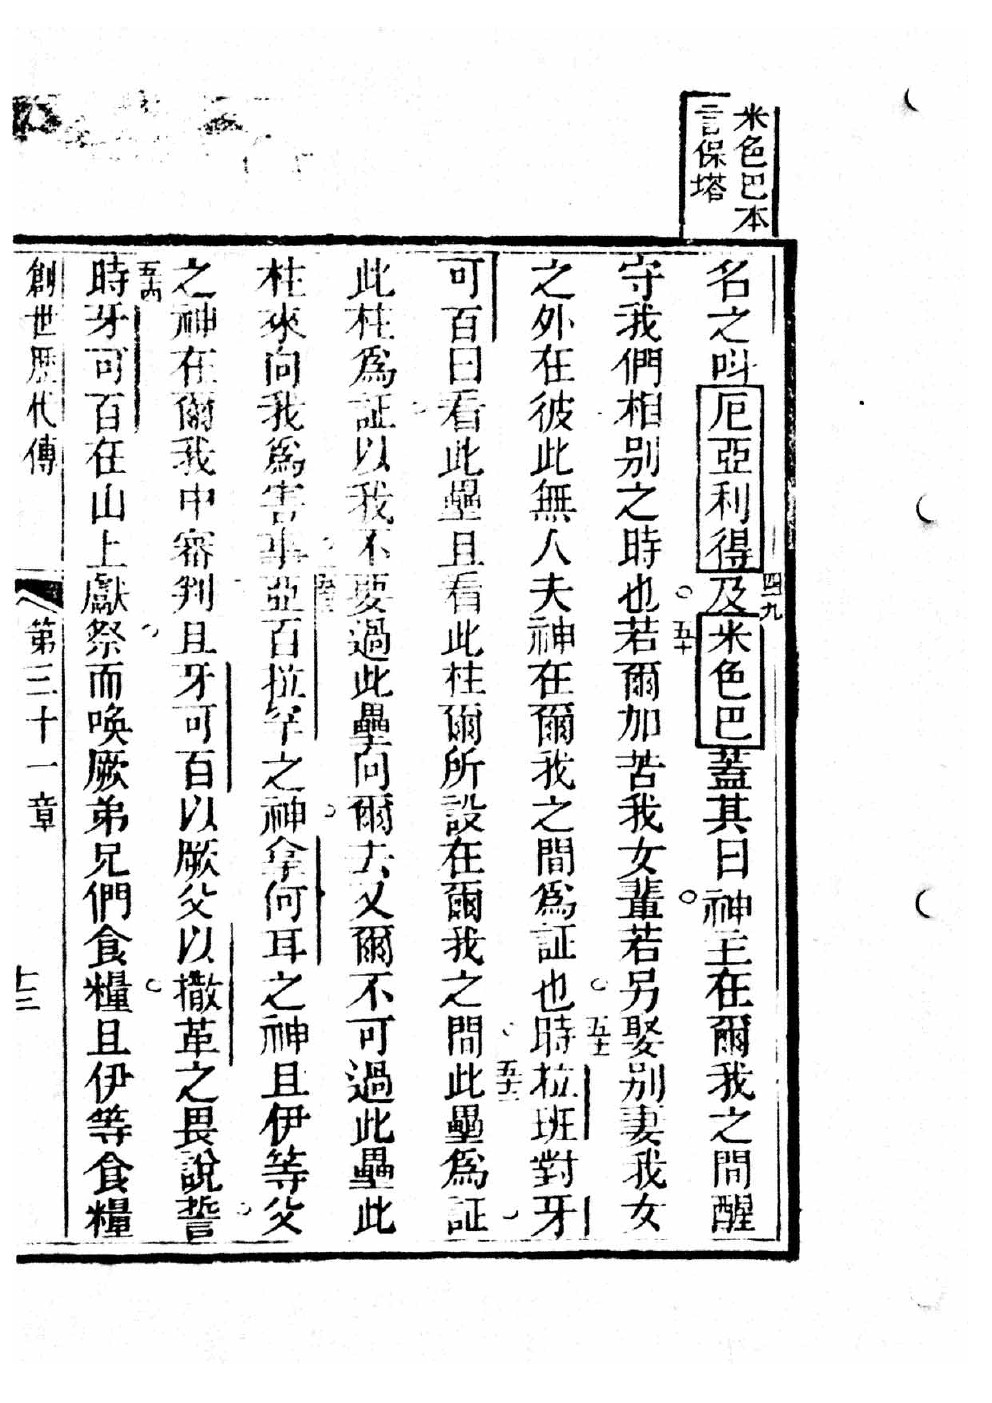 米色巴本
言保塔
名之呌厄亞利得及米色巴蓋其曰神主在爾我之間醒
四九
守我們相别之時也若爾加苦我女輩若另娶别妻我女
五十
之外在彼此無人夫神在爾我之間為証也時拉班對牙
五十一
可百曰看此壘且看此柱爾所設在爾我之間此壘為証
五十二
此柱為証以我不要過此壘向爾去又爾不可過此壘此
柱來向我為害事亞百拉罕之神拿何耳之神且伊等父
之神在爾我中審判且牙可百以厥父以撒革之畏說誓
五十四
時牙可百在山上獻祭而喚厥弟兄們食糧且伊等食糧
創世歷代傳 第三十一章 七三